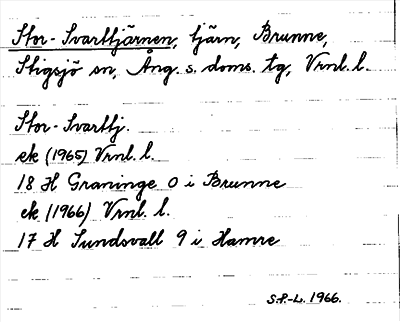 Stor-Svarttjärnen, tjärn, Brunne,
Stigsjö sn, Ång. s. doms. tg, Vrnl. l.
Stor-Svarttj.
ek (1965) Vrnl. l.
18 H Graninge 0 i Brunne
ek (1966) Vrnl. l.
17 H Sundsvall 9 i Hamre
S.P.-L. 1966.